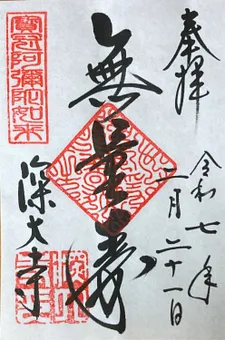 奉拝
令和七年
一月二十一日
無量寿
寶冠阿彌陀如来
深大寺